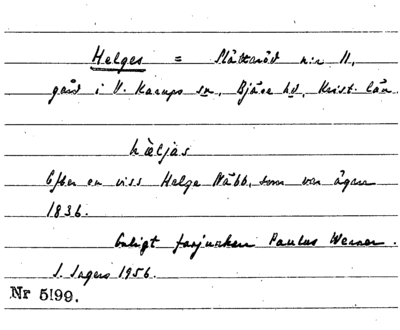 Helges = Slättaröd n:r 11,
gård i V. Karups sn, Bjäre hd, Krist. län.
hæljas
Efter en viss Helge Nabb, som var ägare
1836.
Enligt fanjunkare Paulus Werner.
S. Ingers 1956.
Nr 5199.